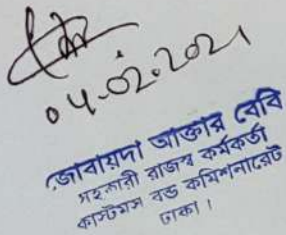 04.02.2021
জোবায়দা আক্তার বেবি
সহকারী রাজস্ব কর্মকর্তা
কাস্টমস বন্ড কমিশনারেট
ঢাকা।